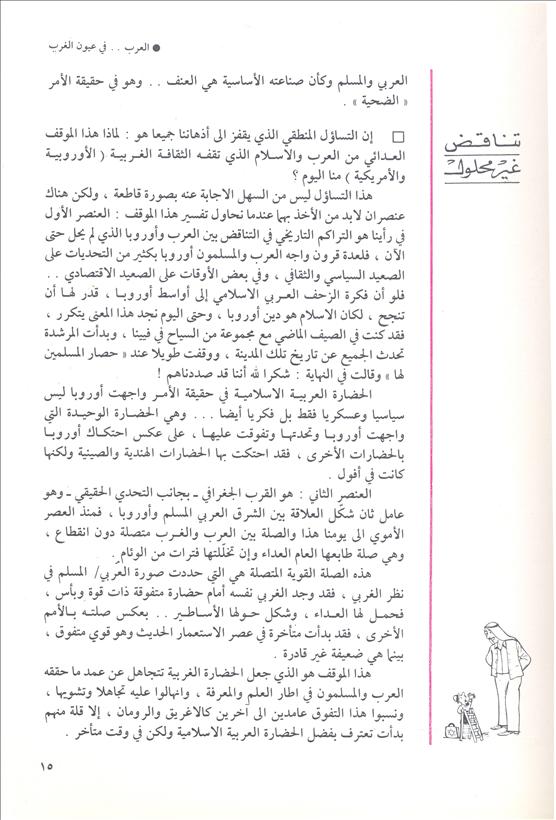 ● العرب . . في عيون الغرب
العربي والمسلم وكأن صناعته الأساسية هي العنف . . وهو في حقيقة الأمر
« الضحية » .
تناقض
غير محلول
□ إن التساؤل المنطقي الذي يقفز الى أذهاننا جميعا هو : لماذا هذا الموقف
العدائي من العرب والاسلام الذي تقفه الثقافة الغربية ( الأوروبية
والأمريكية ) منا اليوم ؟
هذا التساؤل ليس من السهل الاجابة عنه بصورة قاطعة ، ولكن هناك
عنصران لابد من الأخذ بهما عندما نحاول تفسير هذا الموقف : العنصر الأول
في رأينا هو التراكم التاريخي في التناقض بين العرب وأوروبا الذي لم يحل حتى
الآن ، فلعدة قرون واجه العرب والمسلمون أوروبا بكثير من التحديات على
الصعيد السياسي والثقافي ، وفي بعض الأوقات على الصعيد الاقتصادي . .
فلو أن فكرة الزحف العربي الاسلامي إلى أواسط أوروبا ، قدر لها أن
تنجح ، لكان الاسلام هو دين أوروبا ، وحتى اليوم نجد هذا المعنى يتكرر ،
فقد كنت في الصيف الماضي مع مجموعة من السياح في فيينا ، وبدأت المرشدة
تحدث الجميع عن تاريخ تلك المدينة ، ووقفت طويلا عند « حصار المسلمين
لها » وقالت في النهاية : شكرا لله أننا قد صددناهم !
الحضارة العربية الاسلامية في حقيقة الأمر واجهت أوروبا ليس
سياسيا وعسكريا فقط بل فكريا أيضا . . . وهي الحضارة الوحيدة التي
واجهت أوروبا وتحدتها وتفوقت عليها ، على عكس احتكاك أوروبا
بالحضارات الأخرى ، فقد احتكت بها الحضارات الهندية والصينية ولكنها
كانت في أفول .
العنصر الثاني : هو القرب الجغرافي ـ بجانب التحدي الحقيقي ـ وهو
عامل ثان شكّل العلاقة بين الشرق العربي المسلم وأوروبا ، فمنذ العصر
الأموي الى يومنا هذا والصلة بين العرب والغرب متصلة دون انقطاع ،
وهي صلة طابعها العام العداء وإن تخللتها فترات من الوئام .
هذه الصلة القوية المتصلة هي التي حددت صورة العربي/ المسلم في
نظر الغربي ، فقد وجد الغربي نفسه أمام حضارة متفوقة ذات قوة وبأس ،
فحمل لها العداء ، وشكل حولها الأساطير . . بعكس صلته بالأمم
الأخرى ، فقد بدأت متأخرة في عصر الاستعمار الحديث وهو قوي متفوق ،
بينما هي ضعيفة غير قادرة .
هذا الموقف هو الذي جعل الحضارة الغربية تتجاهل عن عمد ما حققه
العرب والمسلمون في اطار العلم والمعرفة ، وانهالوا عليه تجاهلا وتشويها ،
ونسبوا هذا التفوق عامدين الى آخرين كالاغريق والرومان ، إلا قلة منهم
بدأت تعترف بفضل الحضارة العربية الاسلامية ولكن في وقت متأخر .
١٥